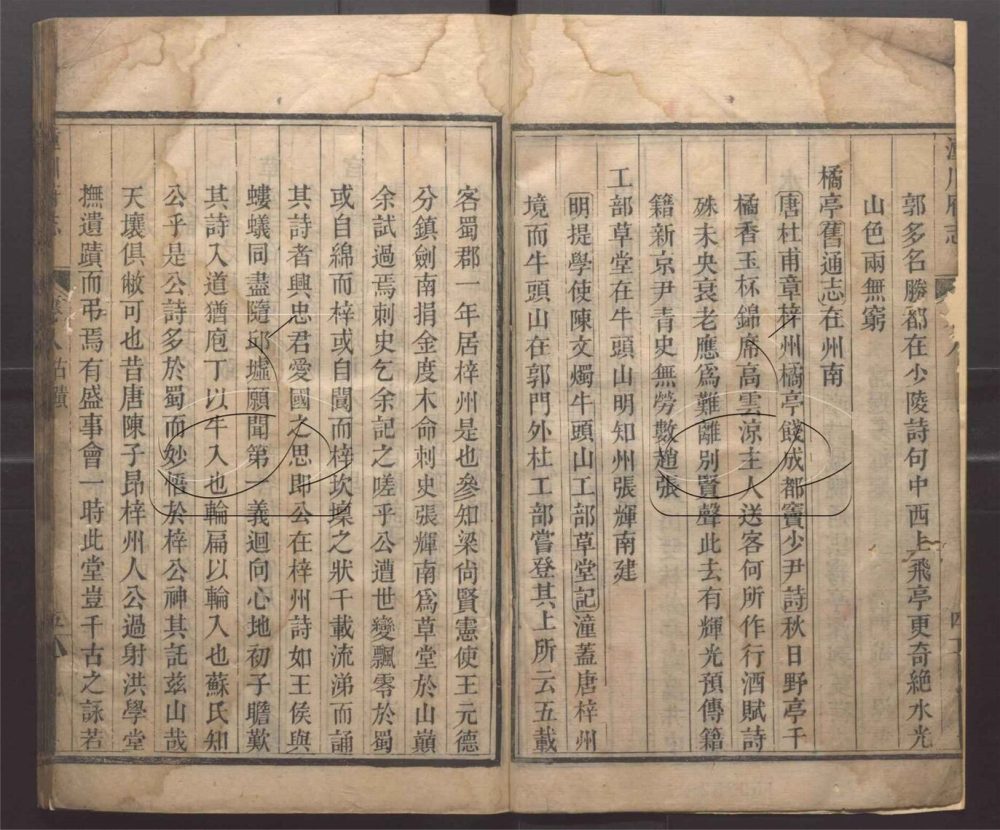 郭多名勝都在少陵詩句中西上飛亭更奇絶水光
山色兩無窮
橘亭舊通志在州南
唐杜甫章梓州橘亭餞成都竇少尹詩秋日野亭千
橘香玉杯錦席高雲涼主人送客何所作行酒賦詩
殊未央衰老應爲難離別賢聲此去有輝光預傳籍
籍新京尹青史無勞數趙張
工部草堂在牛頭山明知州張輝南建
明提學使陳文燭牛頭山工部草堂記潼蓋唐梓州
境而牛頭山在郭門外杜工部嘗登其上所云五載
客蜀郡一年居梓州是也參知梁尙賢憲使王元德
分鎮劍南捐金度木命刺史張輝南爲草堂於山巔
余試過焉刺史乞余記之嗟乎公遭世變飄零於蜀
或自綿而梓或自閬而梓坎壈之狀千載流涕而誦
其詩者興忠君愛國之思即公在梓州詩如王侯與
螻蟻同盡隨邱墟願聞第一義迴向心地初子瞻歎
其詩入道猶庖丁以牛入也輪扁以輪入也蘇氏知
公乎是公詩多於蜀而妙悟於梓公神其託兹山哉
天壤俱敝可也昔唐陳子昻梓州人公過射洪學堂
撫遺蹟而弔焉有盛事會一時此堂豈千古之詠若